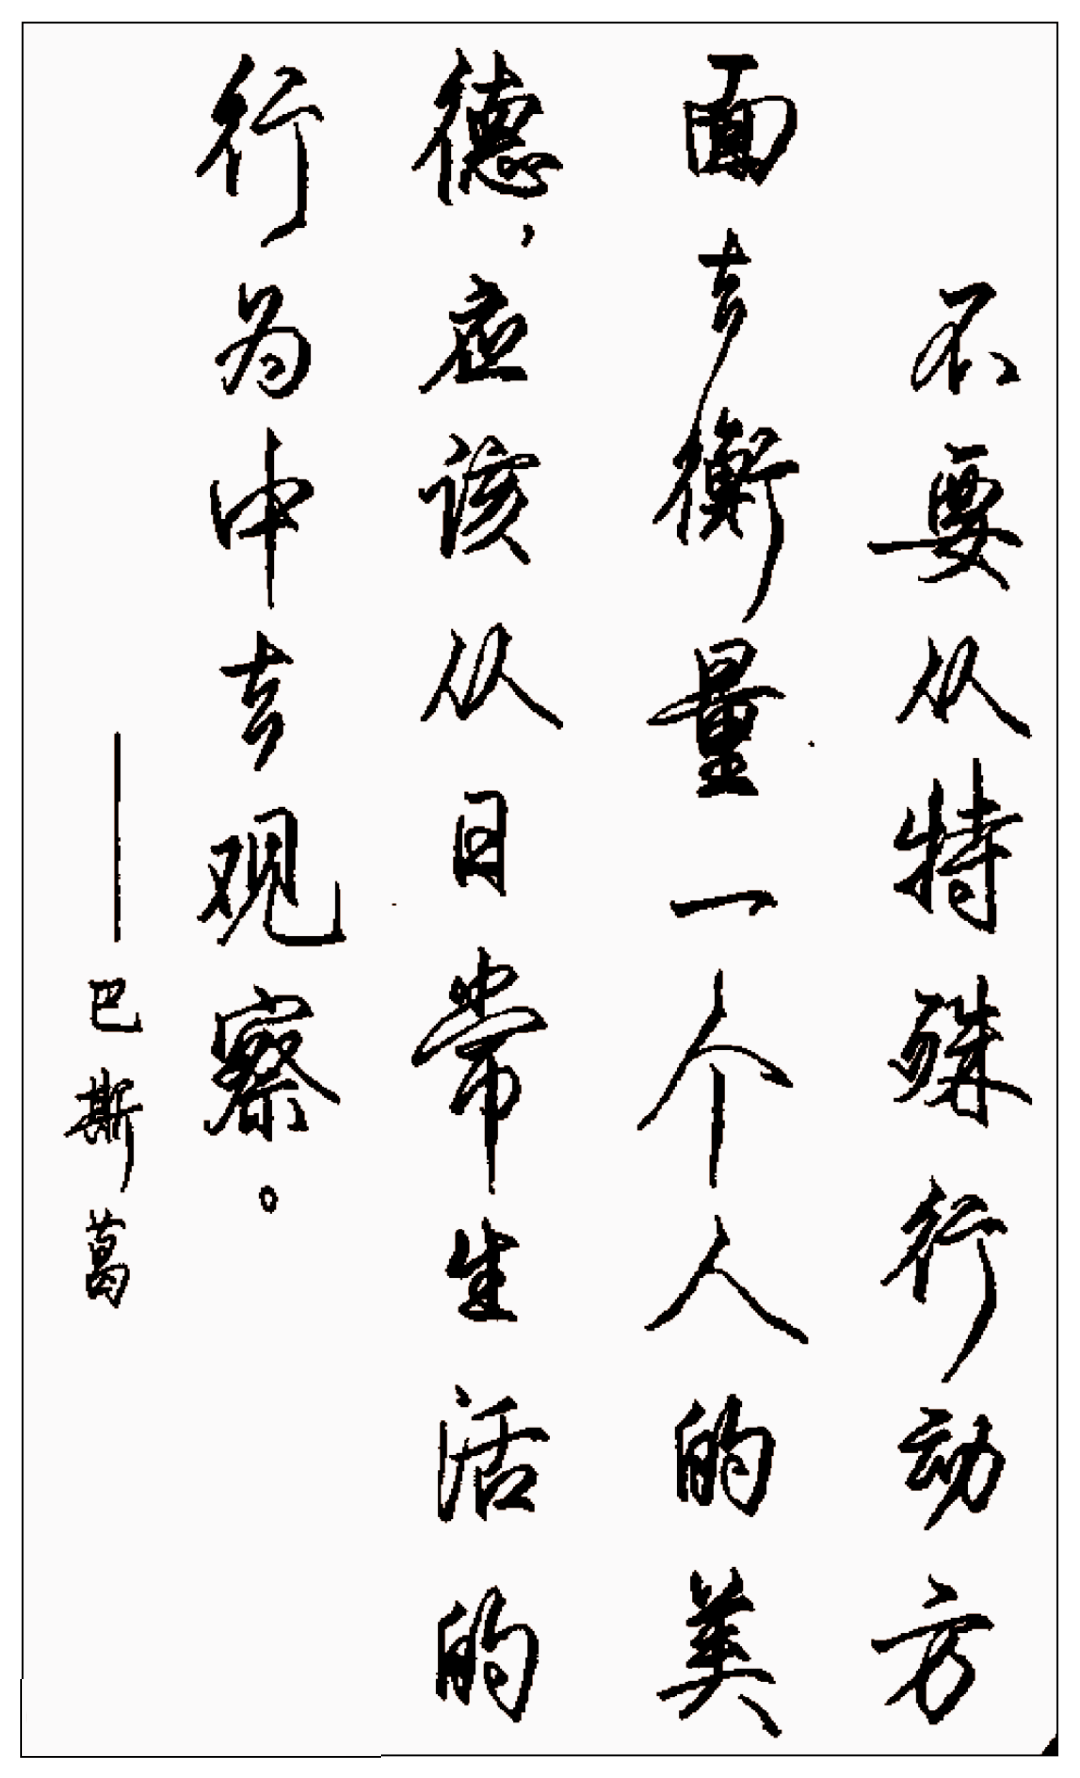 不要从特殊行动方
面去衡量一个人的美
德，应该从日常生活的
行为中去观察。
——巴斯葛